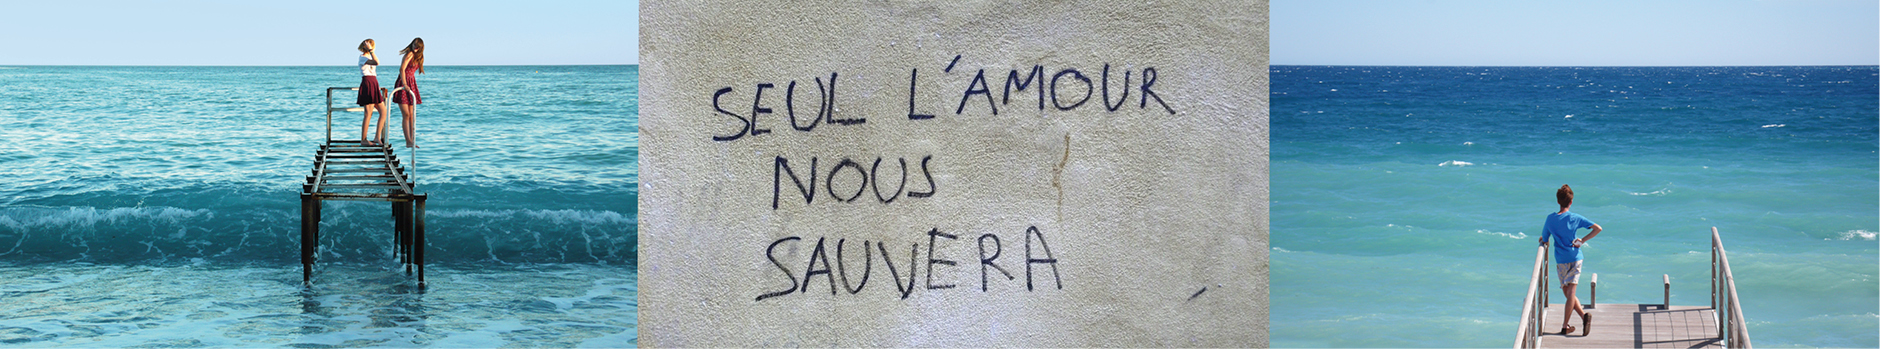 SEUL L'AMOUR
NOUS
SAUVERA